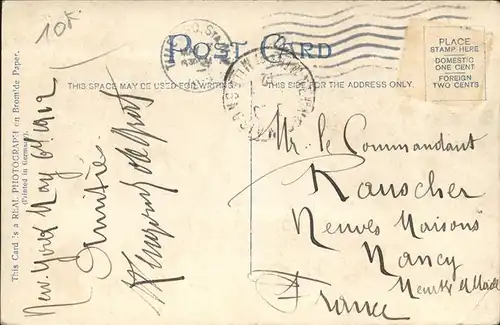 10f.
POST CARD
PLACE
STAMP HERE
DOMESTIC
ONE CENT
FOREIGN
TWO CENTS
THIS SPACE MAY BE USED FOR WRITING.
THIS SIDE FOR THE ADDRESS ONLY.
This Card is a REAL PHOTOGRAPH on Bromide Paper.
(Printed in Germany).
New York May 6th 1912
Amitiés
Mr le Commandant
Rauscher
Neuves Maisons
Nancy
Meurthe & Mos
France